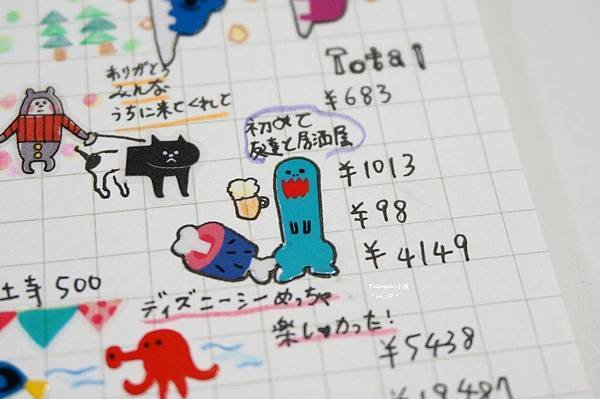 Total
¥683
ありがとう
みんな
うちに来てくれて
初めて
友達と居酒屋
¥1013
¥98
¥4149
土寺 500
ディズニーシーめっちゃ
楽しかった!
¥5438
Takoyaki小姐
"in JP"